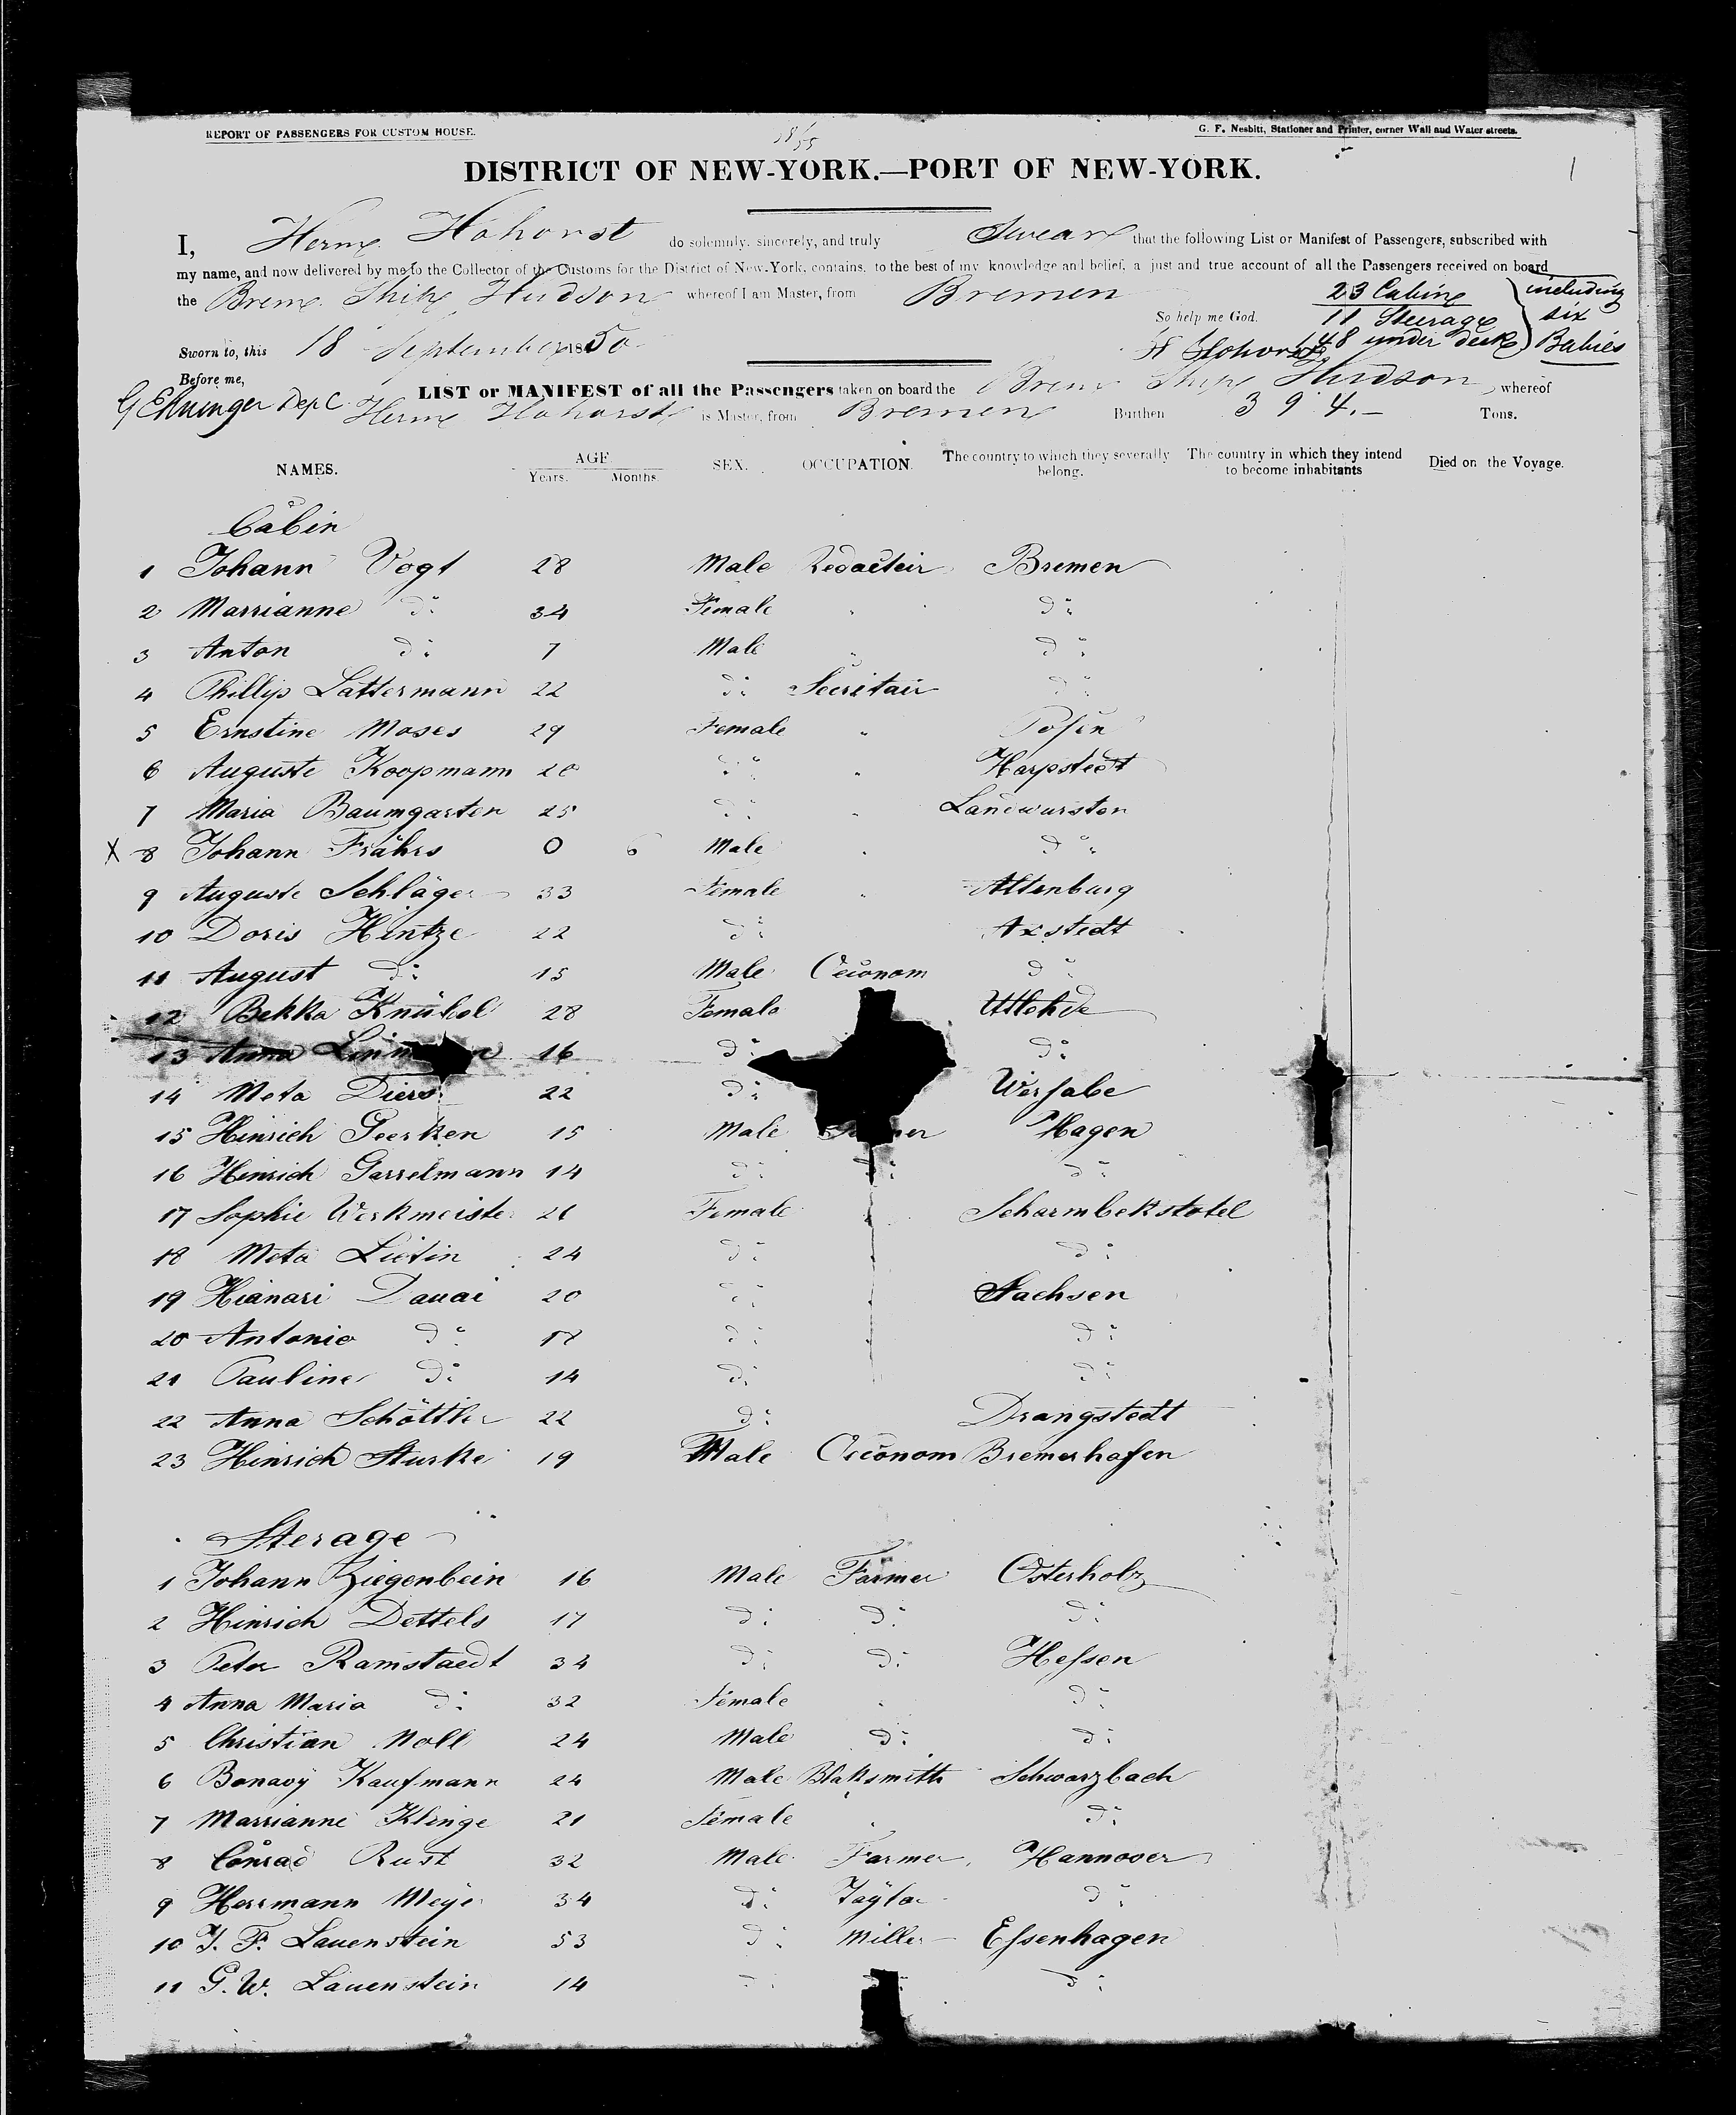 REPORT OF PASSENGERS FOR CUSTOM HOUSE.
G. F. Nesbitt, Stationer and Printer, corner Wall and Water streets.
1
DISTRICT OF NEW-YORK.—PORT OF NEW-YORK.
I, Herm. Hohorst do solemnly, sincerely, and truly Swear that the following List or Manifest of Passengers, subscribed with
my name, and now delivered by me to the Collector of the Customs for the District of New-York, contains, to the best of my knowledge and belief, a just and true account of all the Passengers received on board
the Brem. Ship Hudson whereof I am Master, from Bremen
23 Cabin
11 Steerage
148 under deck
including six Babies
So help me God.
H Hohorst
Sworn to, this 18 September 1850
Before me,
Dep C.
LIST or MANIFEST of all the Passengers taken on board the Brem Ship Hudson, whereof
Herm Hohorst is Master, from Bremen Burthen 394.— Tons.
NAMES. AGE. Years. Months. SEX. OCCUPATION. The country to which they severally belong. The country in which they intend to become inhabitants Died on the Voyage.
Cabin
1 Johann Vogt 28 Male Redacteir Bremen
2 Marrianne do 34 Female do
3 Anton do 7 Male do
4 Phillip Lattermann 22 do Secritair do
5 Ernstine Moses 29 Female Posen
6 Auguste Koopmann 20 do Harpstedt
7 Maria Baumgarten 25 do Landwursten
X 8 Johann Frährs 0 6 Male do
9 Auguste Schläger 33 Female Altenburg
10 Doris Hintze 22 do Axstedt
11 August do 15 Male Oeconom do
12 Bekka Knübel 28 Female Uthlede
13 Anna 16 do do
14 Meta Diers 22 do Wersabe
15 Hinrich Geerken 15 Male Hagen
16 Hinrich Garrelmann 14 do do do
17 Sophie Werkmeister 21 Female Scharmbekstotel
18 Meta Lütin 24 do do
19 Hianari Dauai 20 do Sachsen
20 Antonie do 18 do do
21 Pauline do 14 do do
22 Anna Schöttler 22 do Drangstedt
23 Hinrich Sturke 19 Male Oeconom Bremerhafen
Sterage
1 Johann Ziegenbein 16 Male Farmer Osterholz
2 Hinrich Dettels 17 do do do
3 Peter Ramstaedt 34 do do Hessen
4 Anna Maria do 32 Female do
5 Christian Noll 24 Male do do
6 Bonavy Kaufmann 24 Male Blaksmith Schwarzbach
7 Marrianne Klinge 21 Female do
8 Conrad Rust 32 Male Farmer Hannover
9 Herrmann Meyer 34 do Taylor do
10 J. F. Lauenstein 53 do Miller Essenhagen
11 G. W. Lauenstein 14 do do